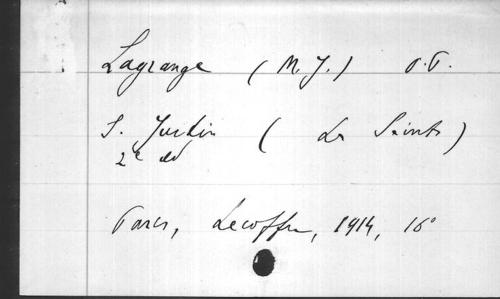 Lagrange (M. J.) O.P.
S. Justin (Les Saints)
2e éd
Paris, Lecoffre, 1914, 16°